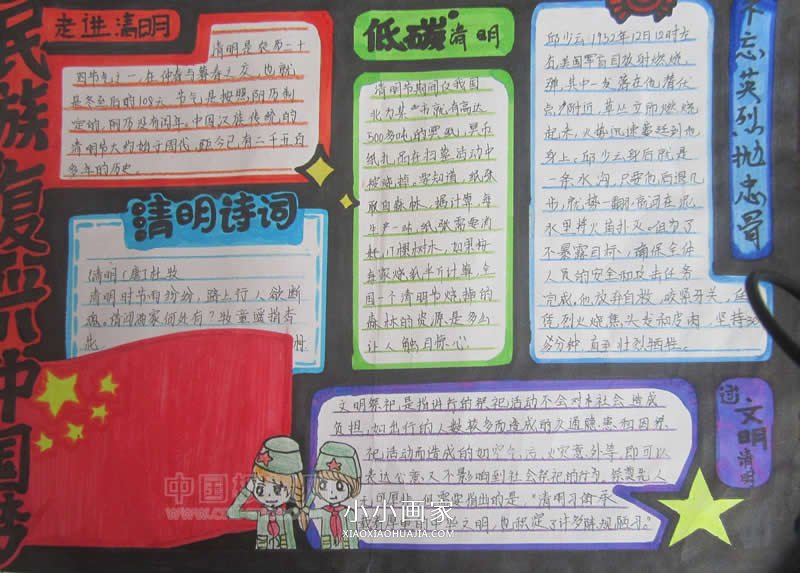 民族复兴中国梦
走进清明
清明是农历二十
四节气之一,在仲春与暮春之交,也就
是冬至后的108天。节气是按照阳历制
定的,阴历没有闰年。中国汉族传统的
清明节大约始于周代,距今已有二千五百
多年的历史。
清明诗词
清明 [唐]杜牧
清明时节雨纷纷,路上行人欲断
魂。借问酒家何处有?牧童遥指杏
低碳清明
清明节期间仅我国
北方某一市就有高达
500多吨的黑纸,黑币
纸扎品在扫墓活动中
被烧掉。要知道,纸张
取自森林,据计算,每
生产一吨纸张需要消
耗17棵树木,如果按
每家烧纸半斤计算,全
国一个清明节烧掉的
森林的资源是多么
让人触目惊心
不忘英烈抛忠骨
邱少云,1952年12月12时左
右,美国军盲目放射燃烧
弹,其中一发落在他潜伏
点附近,草丛立即燃烧
起来,火势迅速蔓延到他
身上,邱少云身后就是
一条水沟,只要他后退几
步,就势一翻,高河在泥
水里将火苗扑灭。但为了
不暴露目标,确保全体
人员的安全和攻击任务
完成,他放弃自救,咬紧牙关,任
凭烈火烧焦头发和皮肉,坚持30
多分钟,直至壮烈牺牲。
文明清明
文明祭祀,是指进行的祭祀活动不会对本社会造成
负担,如出行的人数较多而造成的交通隐患和因祭
祀活动而造成的如空气污,火灾意外等,即可以
表达心意,又不影响到社会祭祀的行为,
但需要指出的是"清明习俗承
文明,也积淀了许多陈规陋习"
小小画家
XIAOXIAOHUAJIA.COM